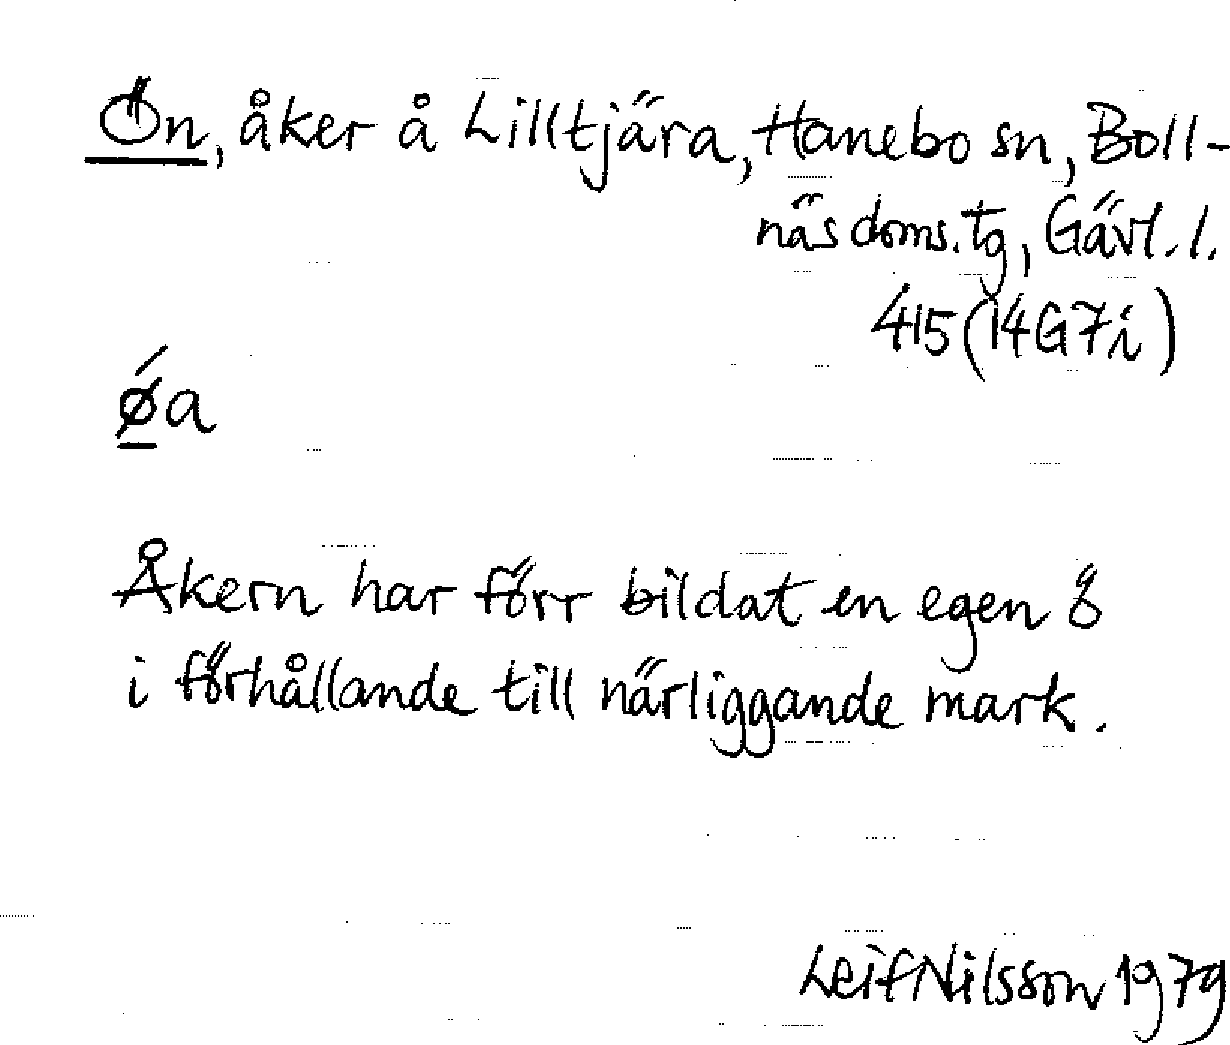 Ön, åker å Lilltjära, Hanebo sn, Boll-
näs doms.tg, Gävl. l.
415 (14G7i)
ǿ̱a
Åkern har förr bildat en egen ö
i förhållande till närliggande mark.
Leif Nilsson 1979